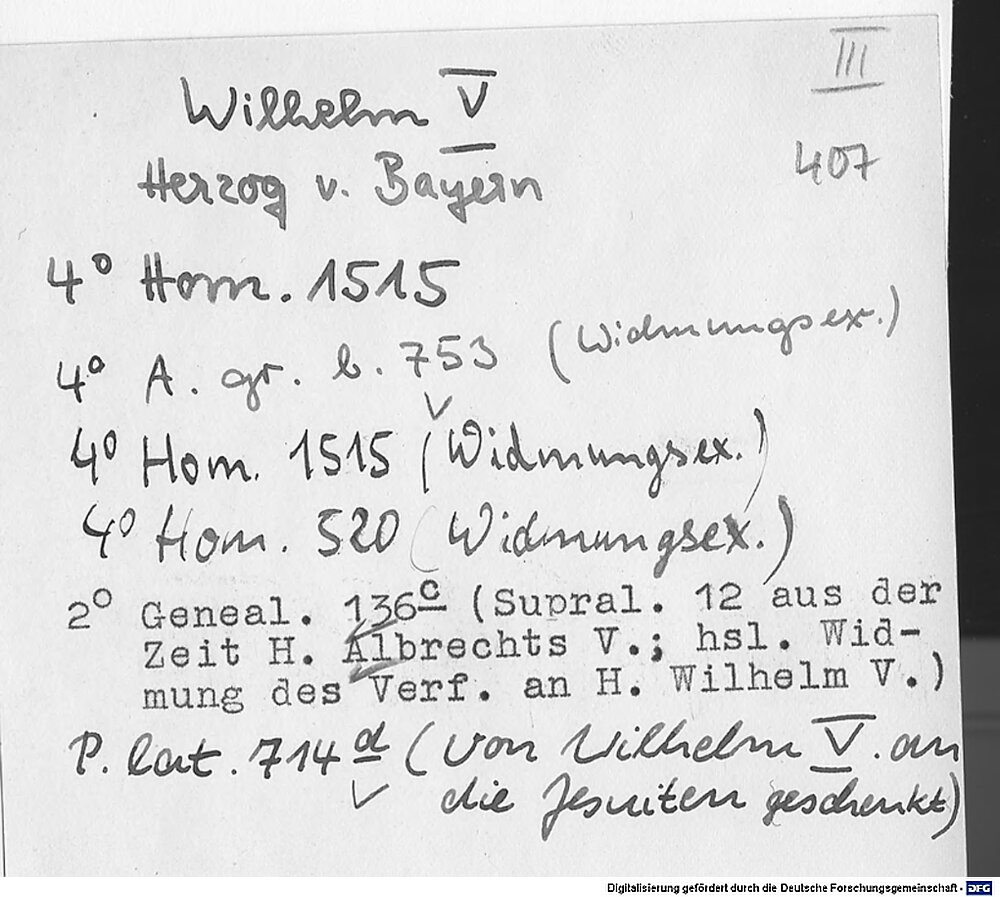 III
Wilhelm V
407
Herzog v. Bayern
4° Hom. 1515
4° A. gr. b. 753 (Widmungsex.)
4° Hom. 1515 (Widmungsex.)
4° Hom. 520 (Widmungsex.)
2° Geneal. 136c (Supral. 12 aus der
Zeit H. Albrechts V.; hsl. Wid-
mung des Verf. an H. Wilhelm V.)
P. lat. 714d (von Wilhelm V. an
die Jesuiten geschenkt)
Digitalisierung gefördert durch die Deutsche Forschungsgemeinschaft - DFG